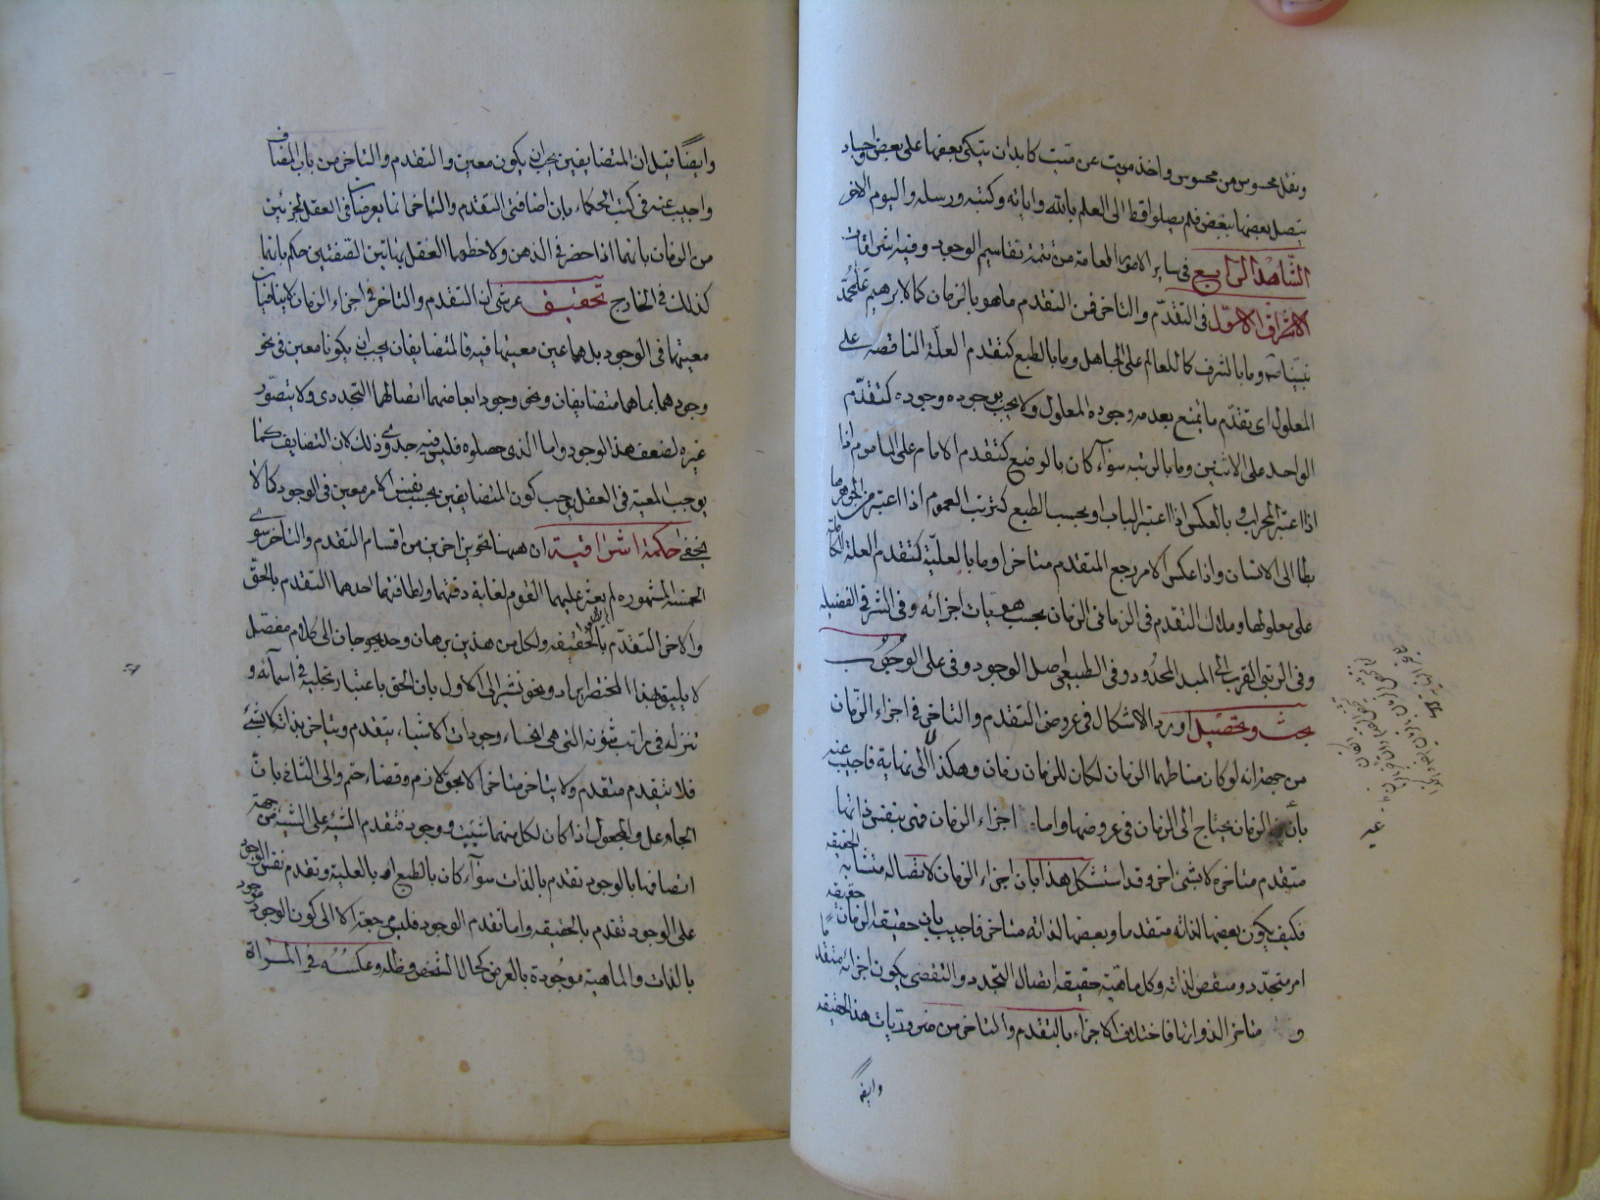 ونقل محسوس من محسوس واخذ ميت عن ميت كابدان يتكى بعضها على بعض واجساد
يتصل بعضها ببعض فلم يصلوا قط الى العلم بالله واياته وكتبه ورسله واليوم الاخر
الشاهد الرابع فى ساير الامور العامة من تتمة تقاسيم الوجود وفيه اشراقات
الاشراق الاول فى التقدّم والتاخر فمن التقدم ما هو بالزمان كما لابرهيم على محمد
وما بالشرف كما للعالم على الجاهل وما بالطبع كتقدم العلّة الناقصه على
المعلول اى تقدّم ما يمتنع بعدمه وجوده المعلول ولا يجب بوجوده وجوده كتقدّم
الواحد على الاثنين وما بالرتبه سوآء كان بالوضع كتقدم الامام على الماموم اذا
اذا اعتبر المحراب وبالعكس اذا اعتبر الباب او بحسب الطبع كترتب العموم اذا اعتبر من الجوهر ها
بطا الى الانسان واذا عكس الامر رجع المتقدم متاخرا وما بالعليّة كتقدم العلة الكاملة
على معلولها وملاك التقدم فى الزمانى الزمان بحسب هويات اجزائه وفى الشرفى الفضيله
وفى الرتبى القرب الى المبدا المحدود وفى الطبيعى اصل الوجود وفى على الوجوب
بحث وتحصيل اورد الاشكال فى عروض التقدم والتاخر فى اجزاء الزمان
من جهة انه لو كان مناطهما الزمان لكان للزمان زمان وهكذا الى نهاية فاجيب عنه
بأن الزمان يحتاج الى الزمان فى عروضها واما اجزاء الزمان فهى بنفس ذاتها
متقدم متاخره لا بشئ اخر وقد استشكل هذا بان اجزاء الزمان لاتصاله متشابه الحقيقه
فكيف يكون بعضها لذاته متقدما وبعضها لذاته متاخر فاجيب بان حقيقه الزمان حقيقه
امر متجدّد ومنقض لذاته وكل ماهية حقيقه اتصال التجدد والتقضى يكون اجزائه متقدما
و متاخرا لذواتها فاختلاف الاجزاء بالتقدم والتاخر من ضروريات هذا الحقيقه
وايضً
وايضًا قيل ان المتضايفين يجب ان يكون معين والتقدم والتاخر من باب المضاف
واجيب عنه فى كتب الحكماء بان اضافتى التقدم والتاخر انما يعرضان فى العقل لجزئين
من الزمان بانهما اذا حضر فى الذهن ولاحظهما العقل بهاتين الصفتين حكم بانهما
كذلك فى الخارج تحقيق عرشى ان التقدم والتاخر فى اجزاء الزمان لا ينافيان
معيتها فى الوجود بل هما عين معيتها فيه فالمتضايفان يجب ان يكونا معين فى نحو
وجودهما بما هما متضايفان ونحو وجود ابعاضهما اتصالهما التجددى ولا يتصوّر
غيره لضعف هذا الوجود واما الذى حصلوه فليس فيه جدوى وذلك لان التضايف كما
يوجب المعية فى العقل يوجب كون المتضايفين بحسب نفس الامر معين فى الوجود كما لا
يخفى حكمة اشراقية ان ههنا نحوين اخرين من اقسام التقدم والتاخر سوى
الخمسة المشهوره لم يعثر عليهما القوم لغاية دقتهما ولطافتهما احدهما التقدم بالحق
والاخر التقدّم بالحقيقه ولكل من هذين برهان وحد يحوجان الى كلام مفصل
لا يليق بهذا المختصر ايراده ونحن نشير الى الاول بان الحق باعتبار تجليه فى اسمائه و
تنزله فى مراتب شؤنه التى هى انحاء وجودات الاشياء يتقدم ويتاخر بذاته لا بشئ
فلا يتقدم متقدم ولا يتاخر متاخر الا بحق لازم وقضاء حتم والى الثانى بان
الجاعل والمجعول اذا كان لكل منهما شيئية ووجود فتقدم الشئ على الشئ من جهة
اتصافها بالوجود تقدم بالذات سوآء كان بالطبع او بالعلية وتقدم نفس الوجود
على الوجود تقدم بالحقيقه واما تقدم الوجود فليس مرجعه الا الى كون الوجود موجود
بالذات والماهية موجودة بالعرض كحال الشخص وظله وعكسه فى المرآة